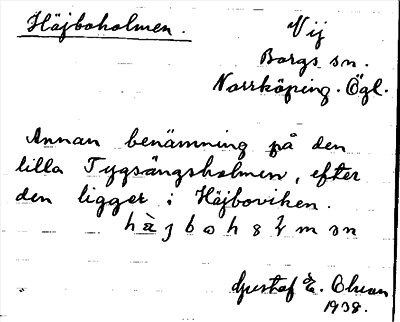 Häjboholmen.
Vij
Borgs sn.
Norrköping. Ögl.
Annan benämning på den
lilla Tygsängsholmen, efter
den ligger i Häjboviken.
Gustaf E.
1938.